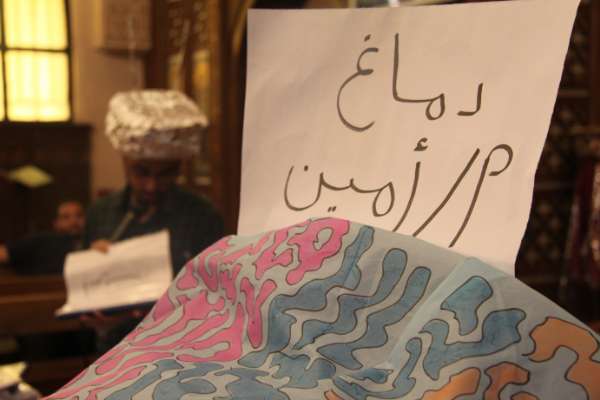 دماغ
م/أمين